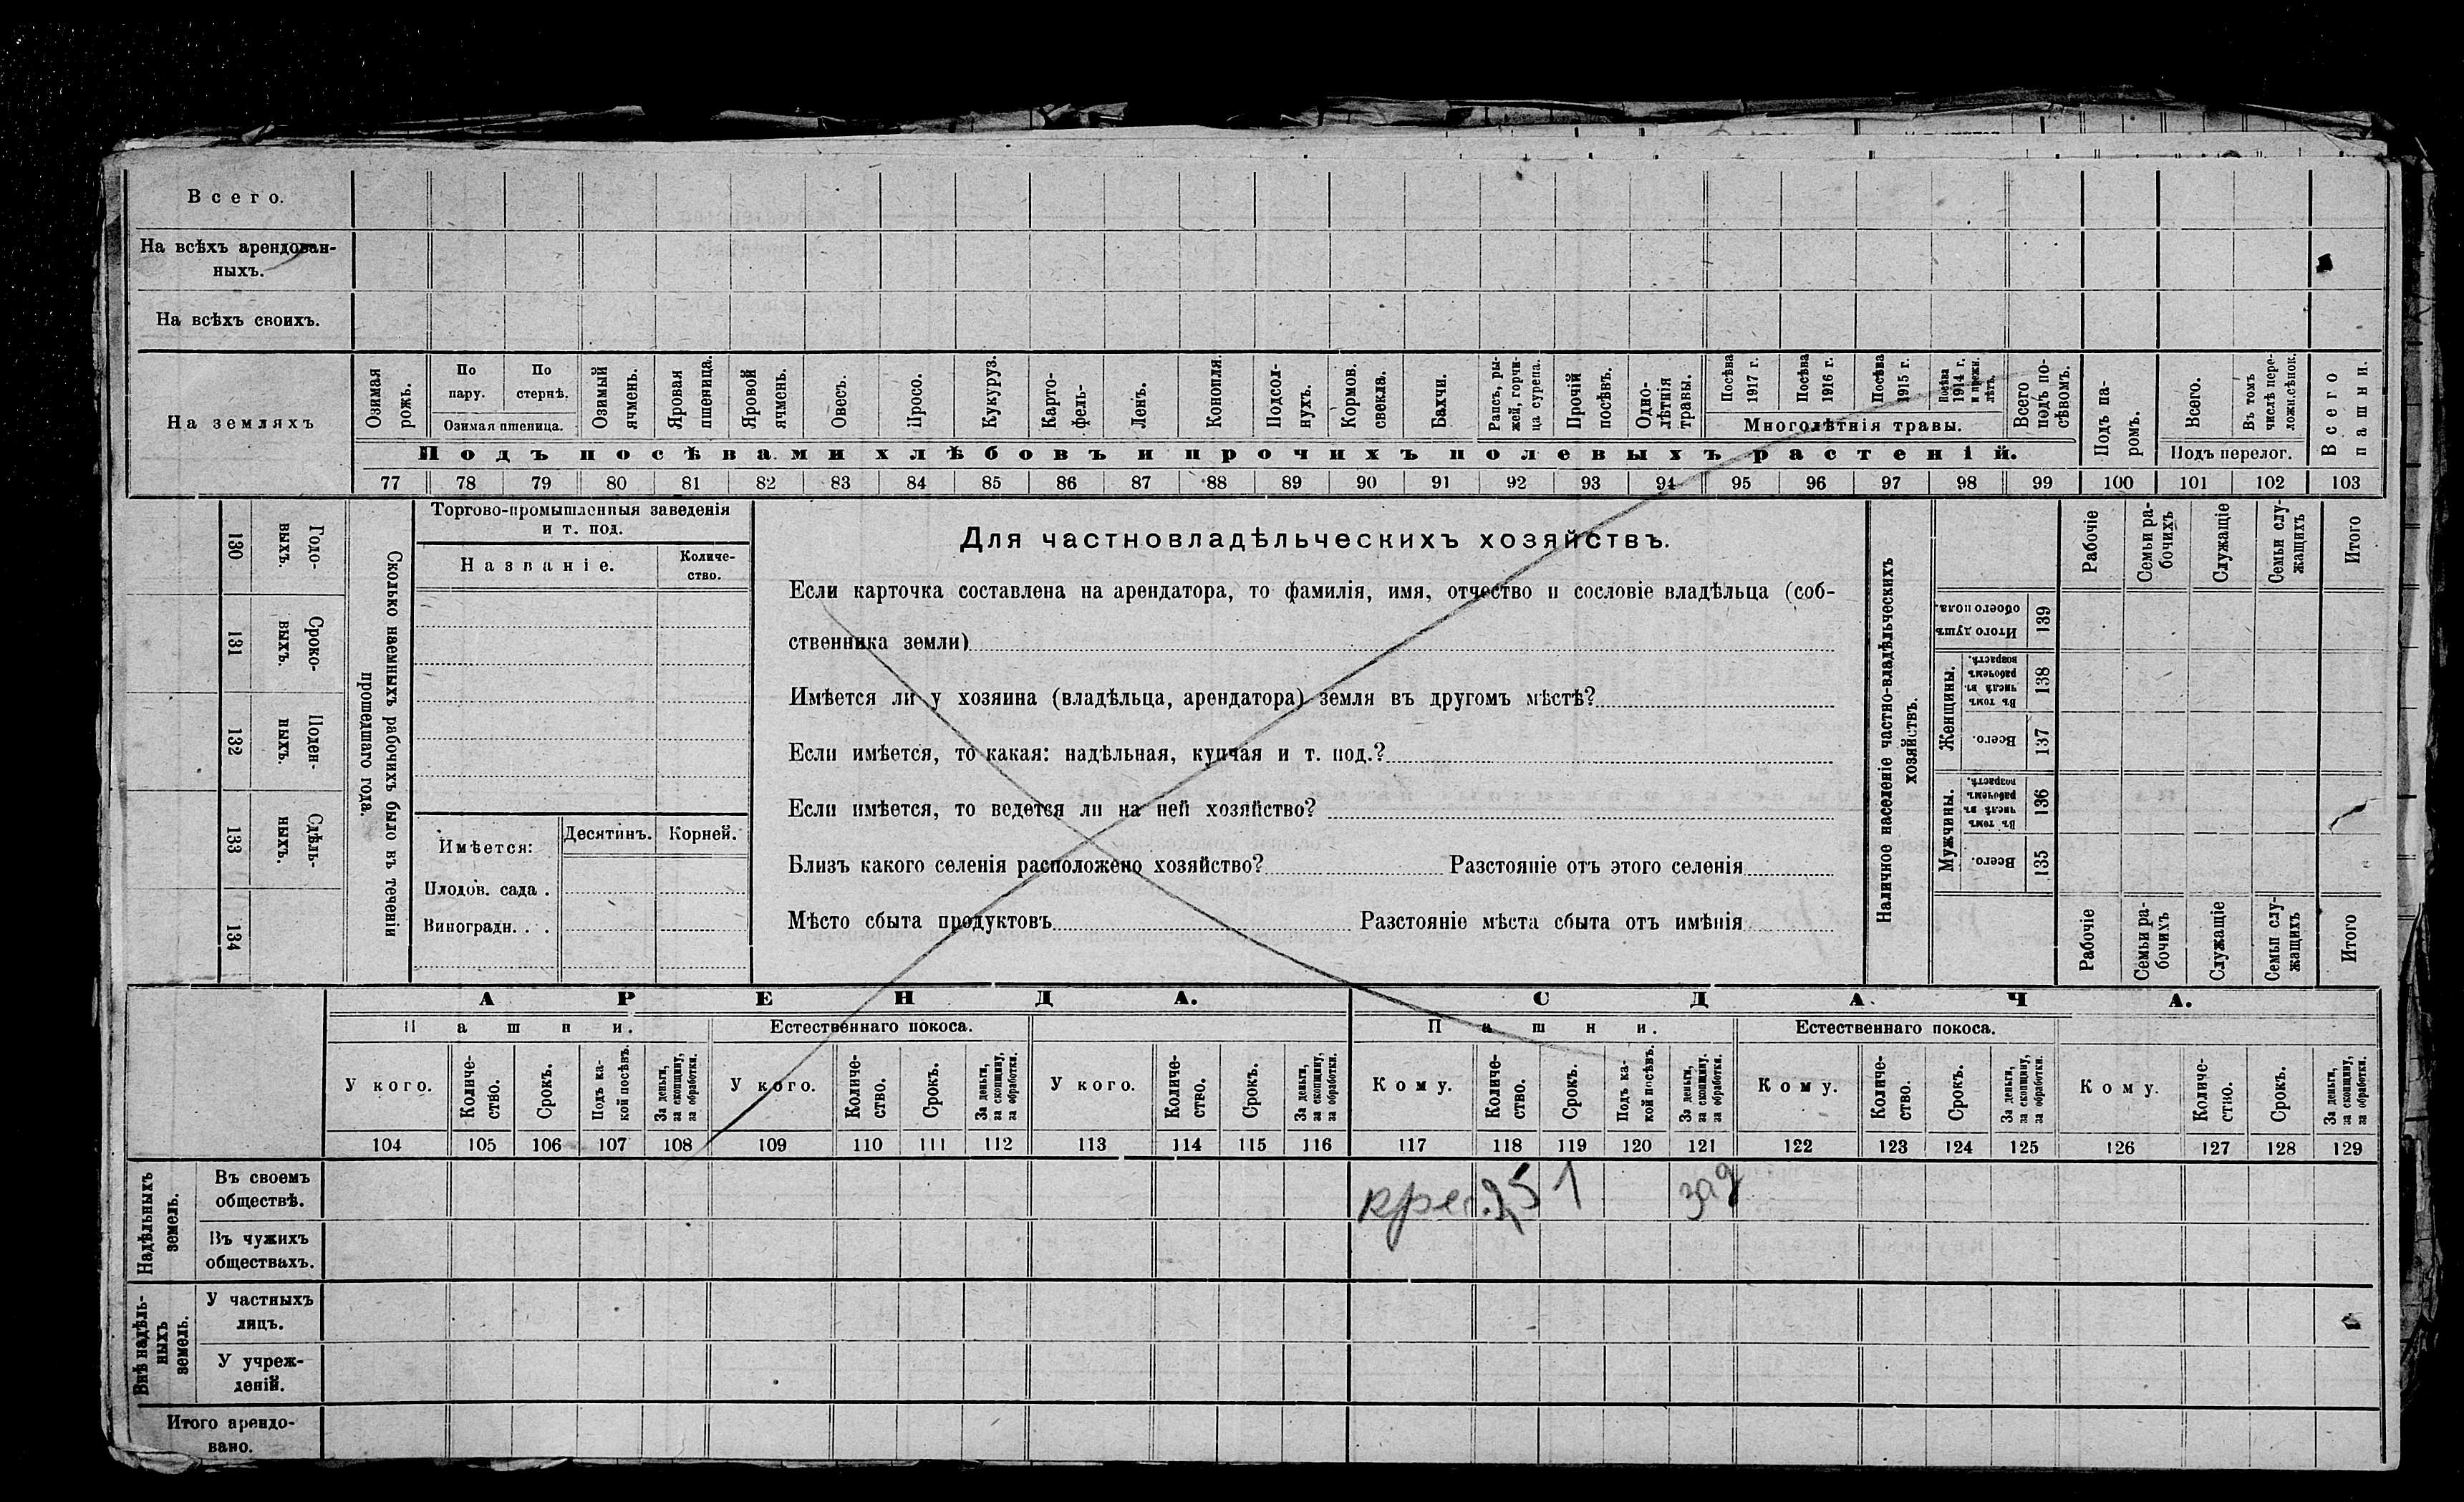 Всего.
На всѣхъ арендован-
ныхъ.
На всѣхъ своихъ.
На земляхъ
Озимая рожь.
По пару.
По стернѣ.
Озимая пшеница.
Озимый ячмень.
Яровая пшеница.
Яровой ячмень.
Овесъ.
Просо.
Кукуруз.
Карто-
фель.
Ленъ.
Конопля.
Подсол-
нухъ.
Кормов. свекла.
Бахчи.
Рапсъ, ры-
жей, горчи-
ца сурепа.
Прочій посѣвъ.
Одно-
лѣтнія травы.
Посѣва 1917 г.
Посѣва 1916 г.
Посѣва 1915 г.
Посѣва 1914 г. и прежн. лѣтъ.
Многолѣтнія травы.
Всего подъ по-
сѣвомъ.
Подъ па-
ромъ.
Всего.
Въ томъ числѣ пере-
ложн.сѣнок.
Подъ перелог.
Всего пашни.
Подъ посѣвами хлѣбовъ и прочихъ полевыхъ растеній.
77 78 79 80 81 82 83 84 85 86 87 88 89 90 91 92 93 94 95 96 97 98 99 100 101 102 103
130 Годо-
выхъ.
131 Сроко-
выхъ.
132 Поден-
ныхъ.
133 Сдѣль-
ныхъ.
134
Сколько наемныхъ рабочихъ было въ теченіи
прошедшаго года.
Торгово-промышленныя заведенія
и т. под.
Названіе.
Количе-
ство.
Имѣется:
Десятин.
Корней.
Плодов. сада .
Виноградн. . .
Для частновладѣльческихъ хозяйствъ.
Если карточка составлена на арендатора, то фамилія, имя, отчество и сословіе владѣльца (соб-
ственника земли)
Имѣется ли у хозяина (владѣльца, арендатора) земля въ другомъ мѣстѣ?
Если имѣется, то какая: надѣльная, купчая и т. под.?
Если имѣется, то ведется ли на ней хозяйство?
Близъ какого селенія расположено хозяйство? Разстояніе отъ этого селенія
Мѣсто сбыта продуктовъ Разстояніе мѣста сбыта отъ имѣнія
Наличное населеніе частно-владѣльческихъ
хозяйствъ.
Рабочіе
Семьи ра-
бочихъ
Служащіе
Семьи слу-
жащихъ
Итого
Итого душъ обоего пола. 139
Женщины.
Въ томъ числѣ въ рабочемъ возрастѣ. 138
Всего. 137
Мужчины.
Въ томъ числѣ въ рабочемъ возрастѣ. 136
Всего. 135
Рабочіе
Семьи ра-
бочихъ
Служащіе
Семьи слу-
жащихъ
Итого
АРЕНДА. СДАЧА.
Пашни. Естественнаго покоса. Пашни. Естественнаго покоса.
У кого.
Количе-
ство.
Срокъ.
Подъ ка-
кой посѣвъ.
За деньги, за скопщину, за обработки.
У кого.
Количе-
ство.
Срокъ.
За деньги, за скопщину, за обработки.
У кого.
Количе-
ство.
Срокъ.
За деньги, за скопщину, за обработки.
Кому.
Количе-
ство.
Срокъ.
Подъ ка-
кой посѣвъ.
За деньги, за скопщину. за обработки.
Кому.
Количе-
ство.
Срокъ.
За деньги, за скопщину, за обработки.
Кому.
Количе-
ство.
Срокъ.
За деньги, за скопщину, за обработки.
104 105 106 107 108 109 110 111 112 113 114 115 116 117 118 119 120 121 122 123 124 125 126 127 128 129
Надѣльныхъ земель.
Въ своемъ
обществѣ.
1
Въ чужихъ
обществахъ.
Внѣ надѣль-
ныхъ земель.
У частныхъ
лицъ.
У учреж-
деній.
Итого арендо-
вано.